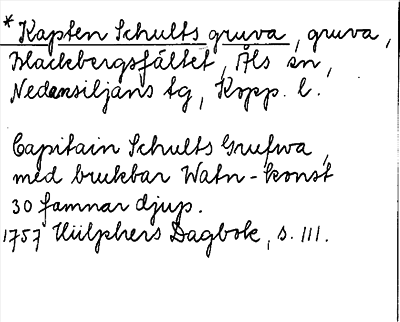 * Kapten Schults gruva, gruva,
Blackbergsfältet, Åls sn,
Nedansiljans tg, Kopp. l.
Capitain Schults Grufwa,
med brukbar Watn-konst
30 famnar djup.
1757 Hülphers Dagbok, s. 111.